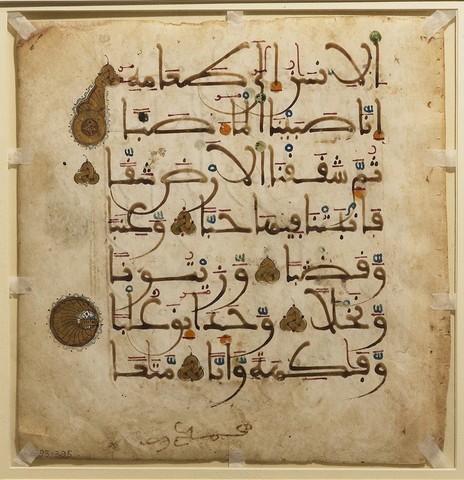 الانسٰن الى طعامه
انّا صببنا الما صبّا
ثمّ شققنا الارض شقّا
فانبتنا فيها حبّا وعنبا
وقضبا وزيتونا
ونخلا وحدايق غلبا
وفكهة وابّا متعا